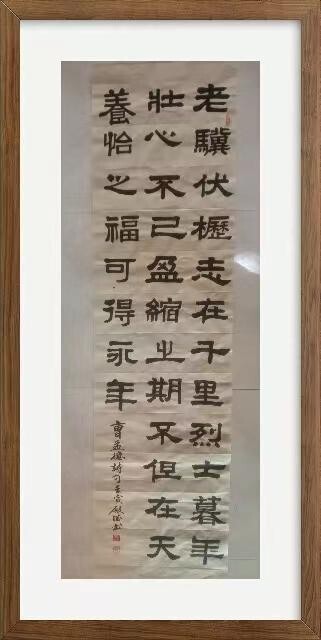 老驥伏櫪志在千里烈士暮年
壯心不已盈縮之期不但在天
養怡之福可得永年
曹孟德詩句壬寅